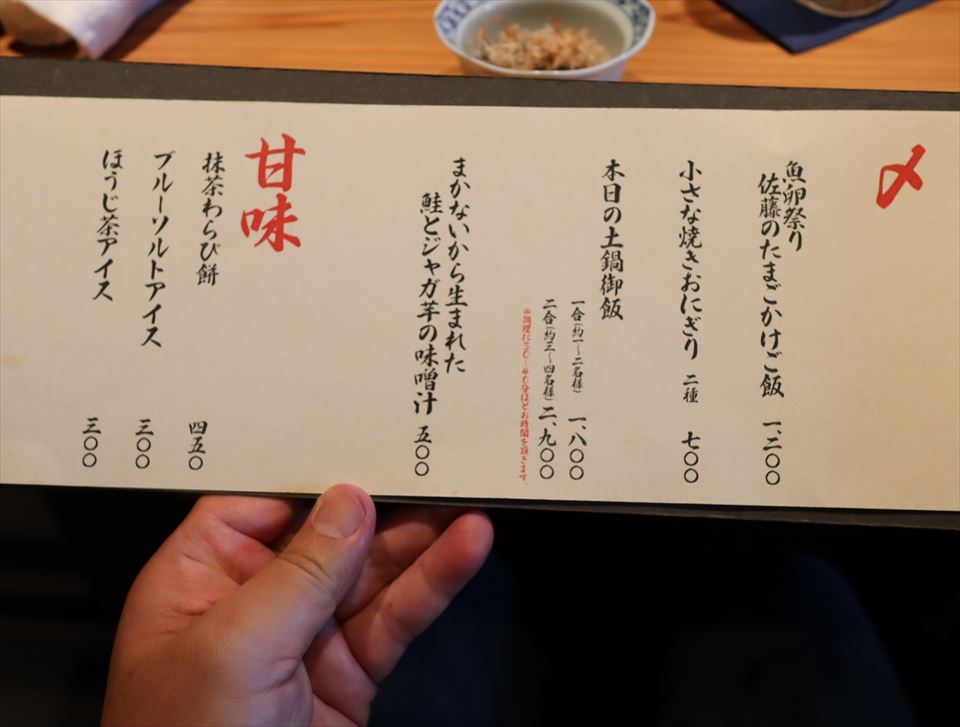 〆
魚卵祭り
佐藤のたまごかけご飯 一、二〇〇
小さな焼きおにぎり 二種 七〇〇
本日の土鍋御飯
一合(約一~二名様) 一、八〇〇
二合(約三~四名様) 二、九〇〇
※調理に30~40分ほどお時間を頂きます。
まかないから生まれた
鮭とジャガ芋の味噌汁 五〇〇
甘味
抹茶わらび餅 四五〇
ブルーソルトアイス 三〇〇
ほうじ茶アイス 三〇〇